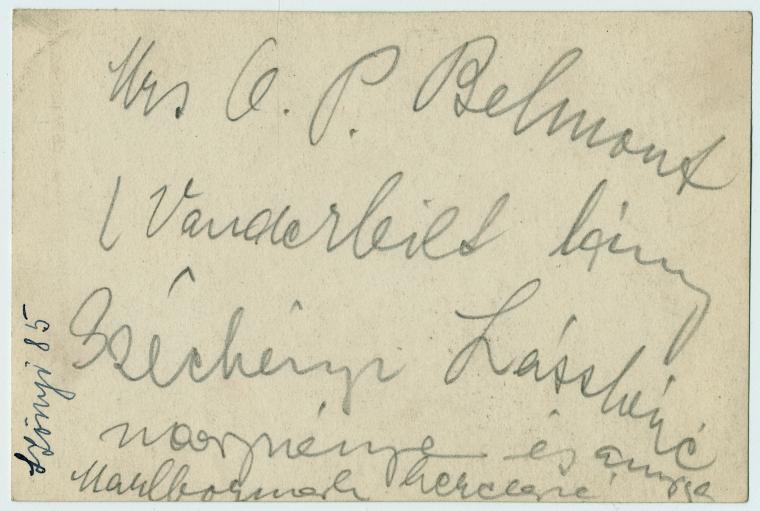 Mrs O. P. Belmont
(Vanderbilt lány
Széchényi Lászlóné
nagynénje és anyja
Marlborough hercegné
Szőnyi 85